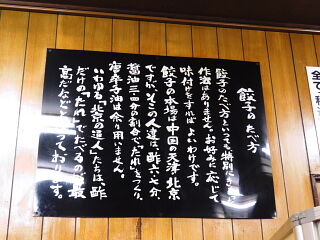 餃子のたべ方
餃子のたべ方といっても、特別にきまった
作法はありません。お好みに応じて
味付けをすればよいわけです。
餃子の本場は中国の天津、北京
ですが、そこの人達は、酢六・七分、
醤油三・四分の割合で「たれ」をつくり、
唐辛子油は余り用いません。
いわゆる「北京の道人」たちは、酢
だけの「たれ」でたべるのが最
高だなどと言っております。